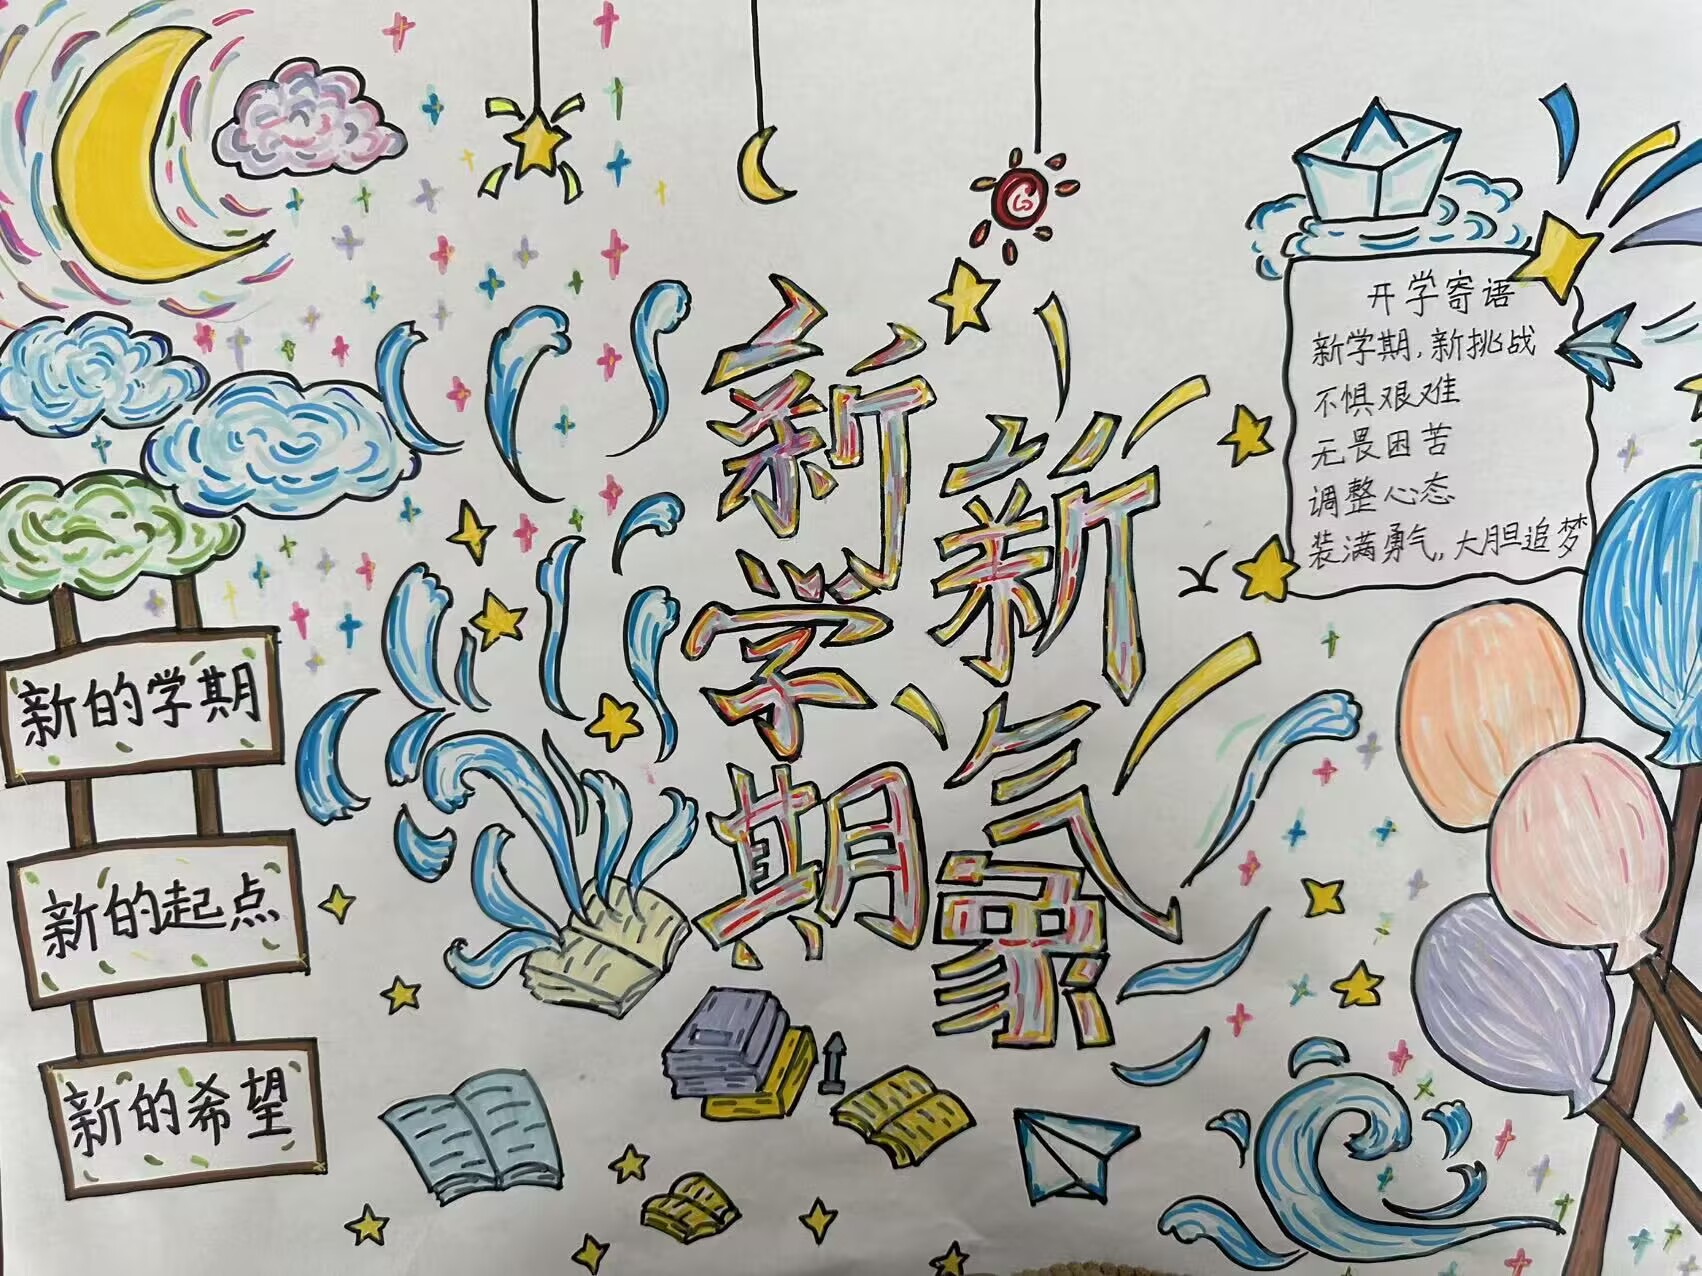 新学期
新气象
开学寄语
新学期,新挑战
不惧艰难
无畏困苦
调整心态
装满勇气,大胆追梦
新的学期
新的起点
新的希望